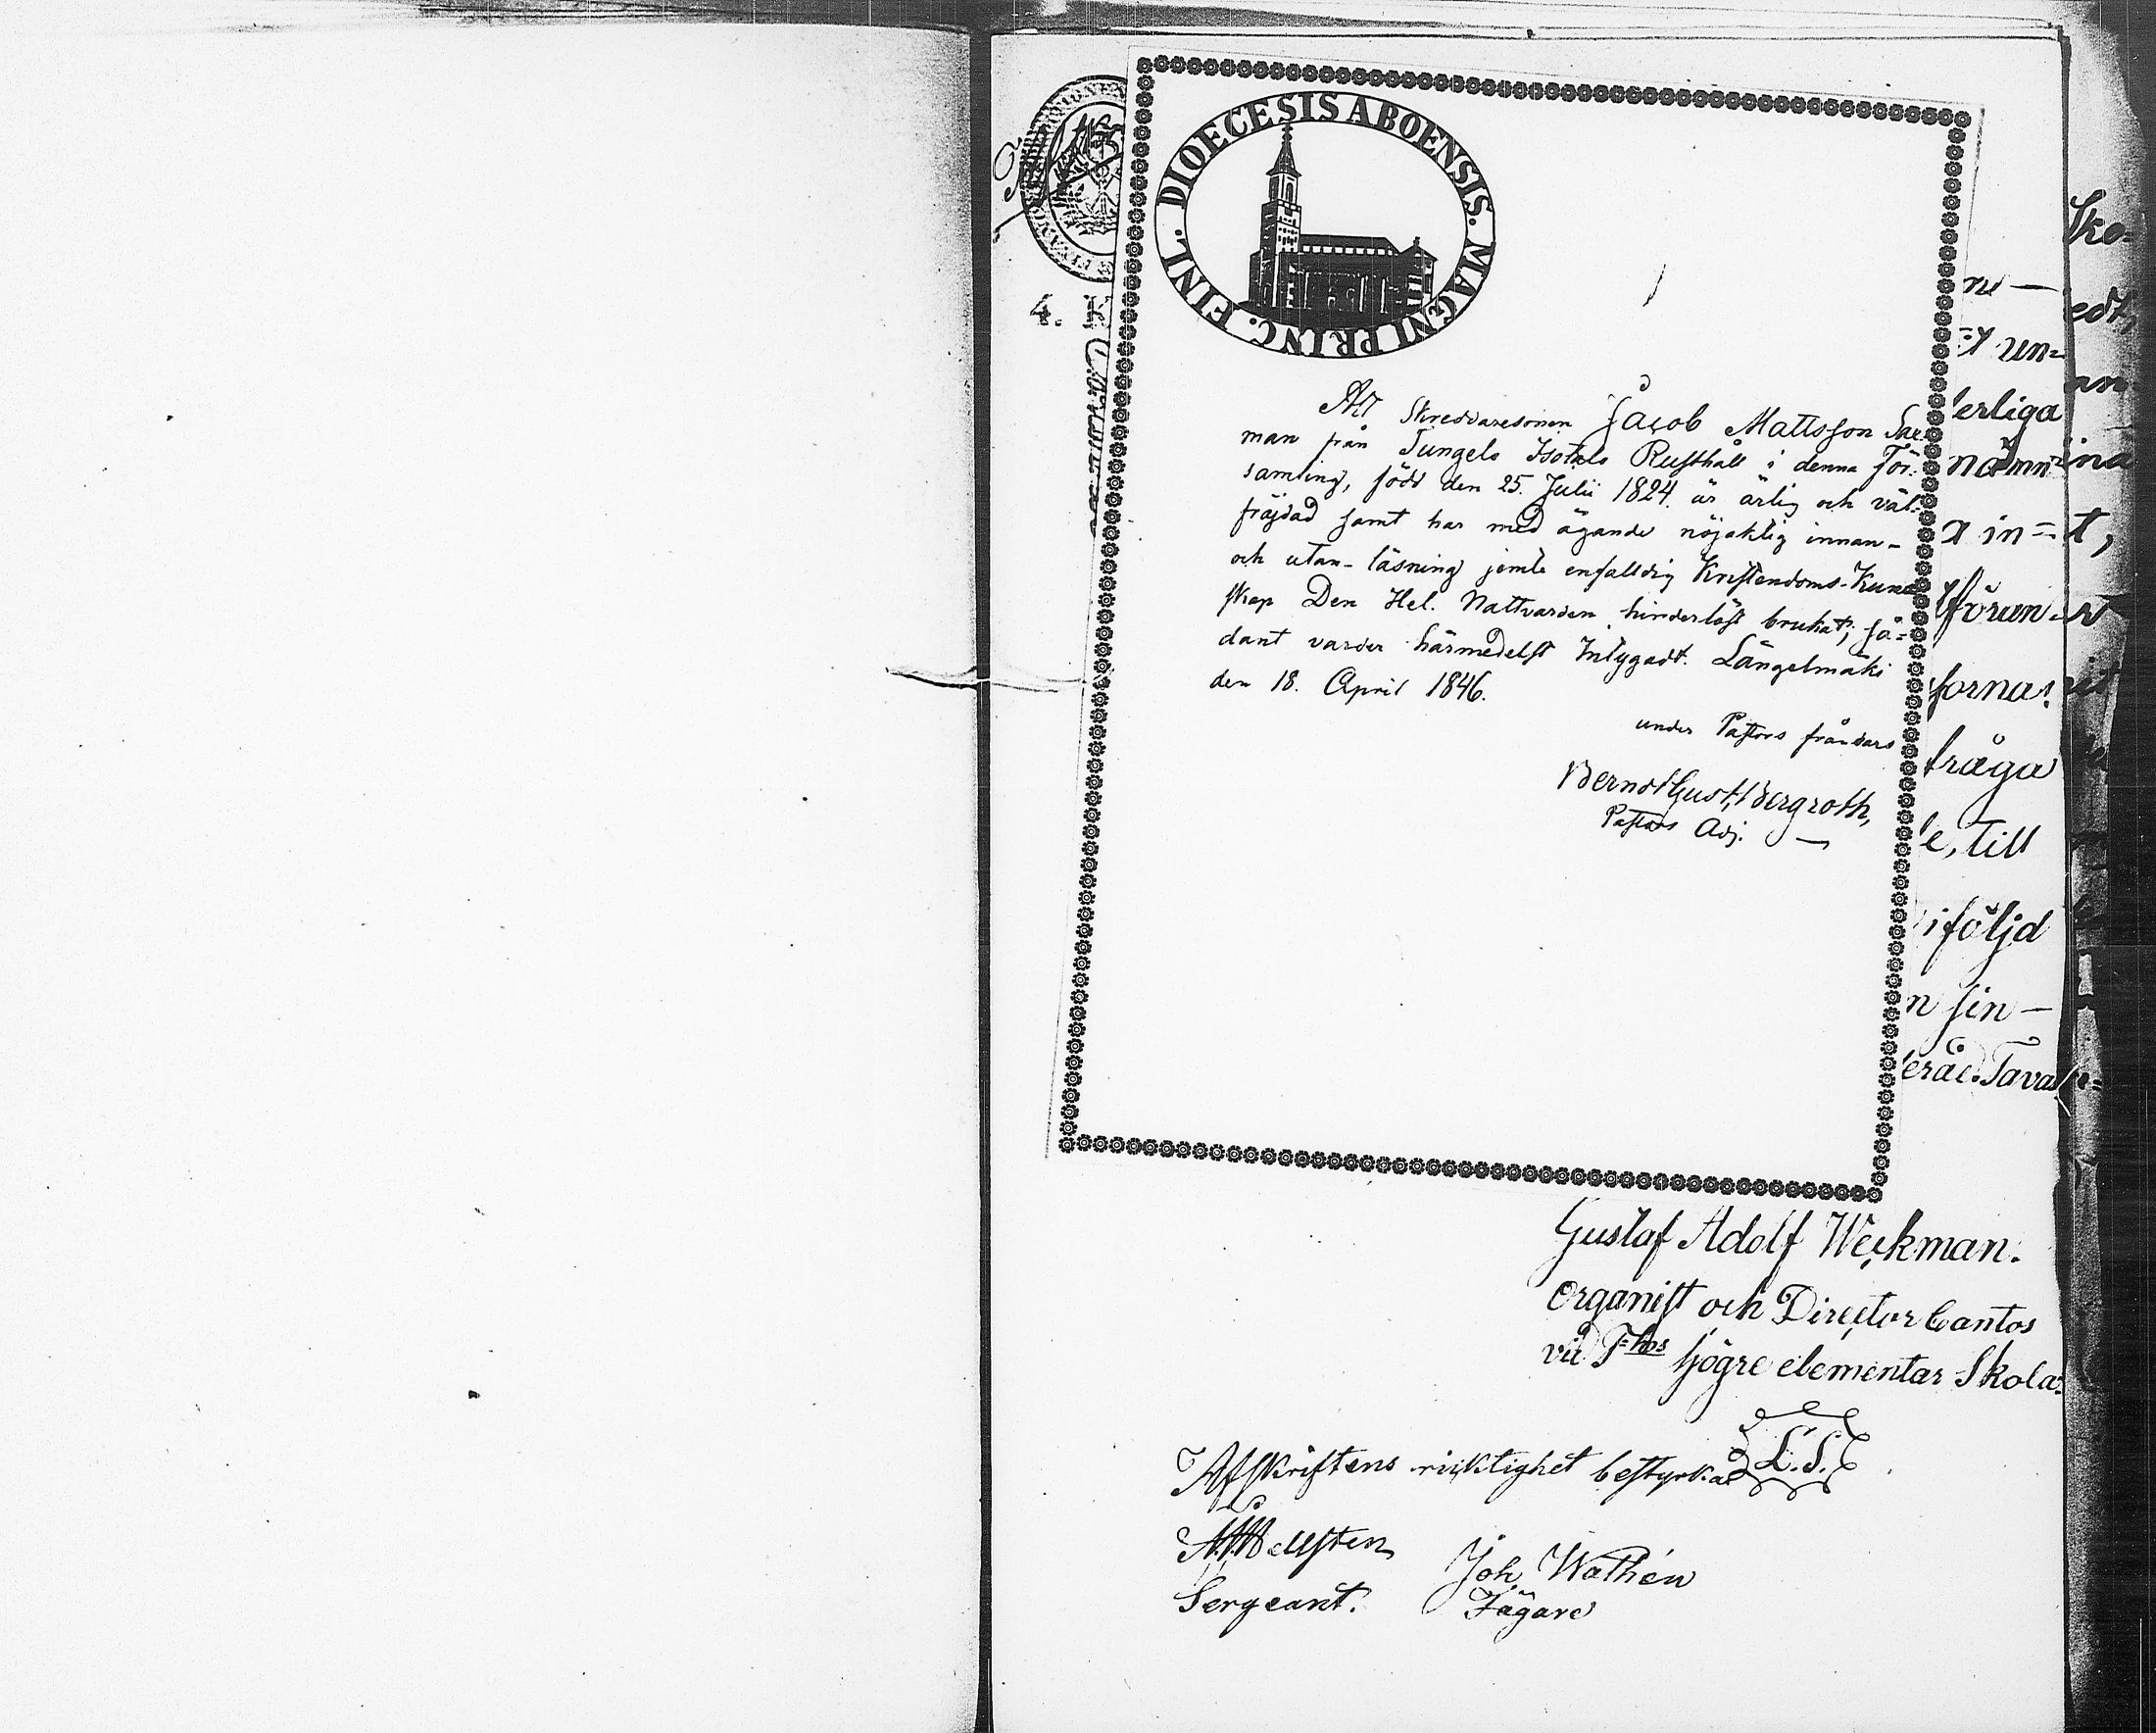 DIOECESIS ABOENSIS. MAGNI PRINC. FINL.
4.
Att Skreddaresonen Jacob Mattsson Sax=
man från Tungelo Isotalo Rusthåll i denna För=
samling, född den 25. Julii 1824. är ärlig och väl=
fräjdad samt har med ägande nöjaktig innan-
och utan-läsning jemte enfalldig Kristendoms-Kund
skap Den Hel. Nattvarden hinderlöst brukat; så=
dant varder härmedelst Intygadt. Längelmäki
den 18. April 1846.
under Pastors frånvaro
Bernd Gust. Bergroth,
Pastors Adj.
Sko=
edt,
un=
erliga
nämn
in=
t,
förun
forna
fråga
e, till
iföljd
n sin-
Tava
Gustaf Adolf Weckman.
Organist och Director Cantos
vid T=hus högre elementar Skola.
Afskriftens ricktighet bestyrka
L.S.
Hellsten
Joh Wathén
Sergeant.
Jägare